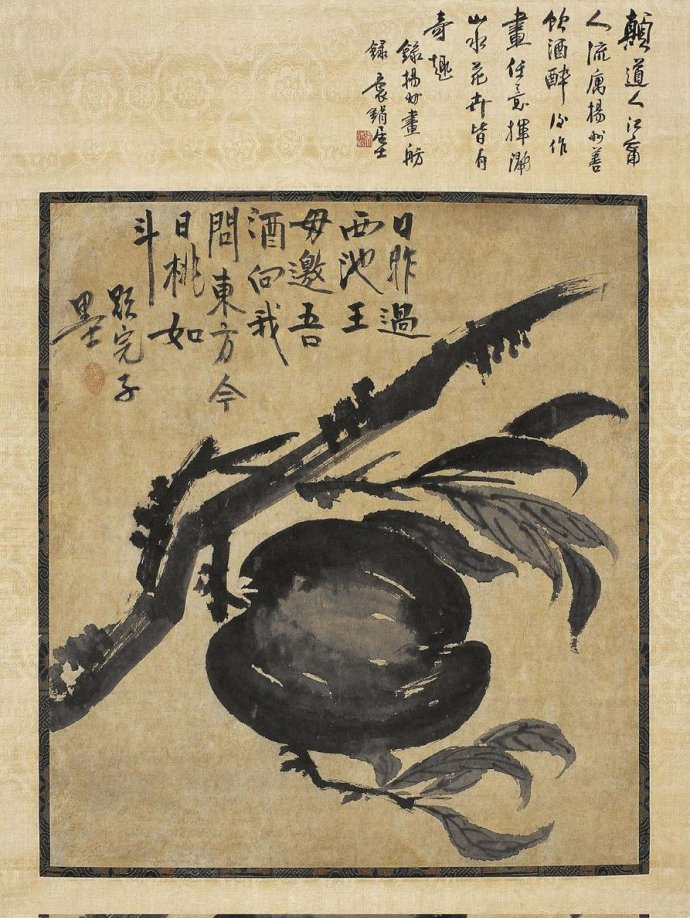 顛道人江甯
人流寓揚州善
飲酒醉後作
畫任意揮灑
山水花卉皆有
奇趣
錄揚州畫舫
錄 居士
日昨過
西池王
母邀吾
酒向我
問東方今
日桃如
斗
完子
墨